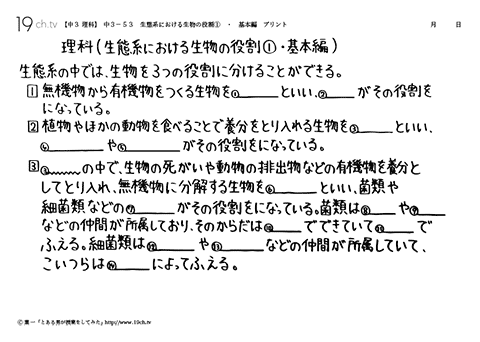 19ch.tv 【中3 理科】 中3-53 生態系における生物の役割① ・ 基本編 プリント 月 日
理科(生態系における生物の役割①・基本編)
生態系の中では、生物を3つの役割に分けることができる。
1 無機物から有機物をつくる生物を①____といい、②____がその役割をになっている。
2 植物やほかの動物を食べることで養分をとり入れる生物を③____といい、
____や____がその役割をになっている。
3 ____の中で、生物の死がいや動物の排出物などの有機物を養分と
してとり入れ、無機物に分解する生物を____といい、菌類や
細菌類などの____がその役割をになっている。菌類は____や____
などの仲間が所属しており、そのからだは____でできていて____で
ふえる。細菌類は____や____などの仲間が所属していて、
こいつらは____によってふえる。
Ⓒ 葉一「とある男が授業をしてみた」http://www.19ch.tv